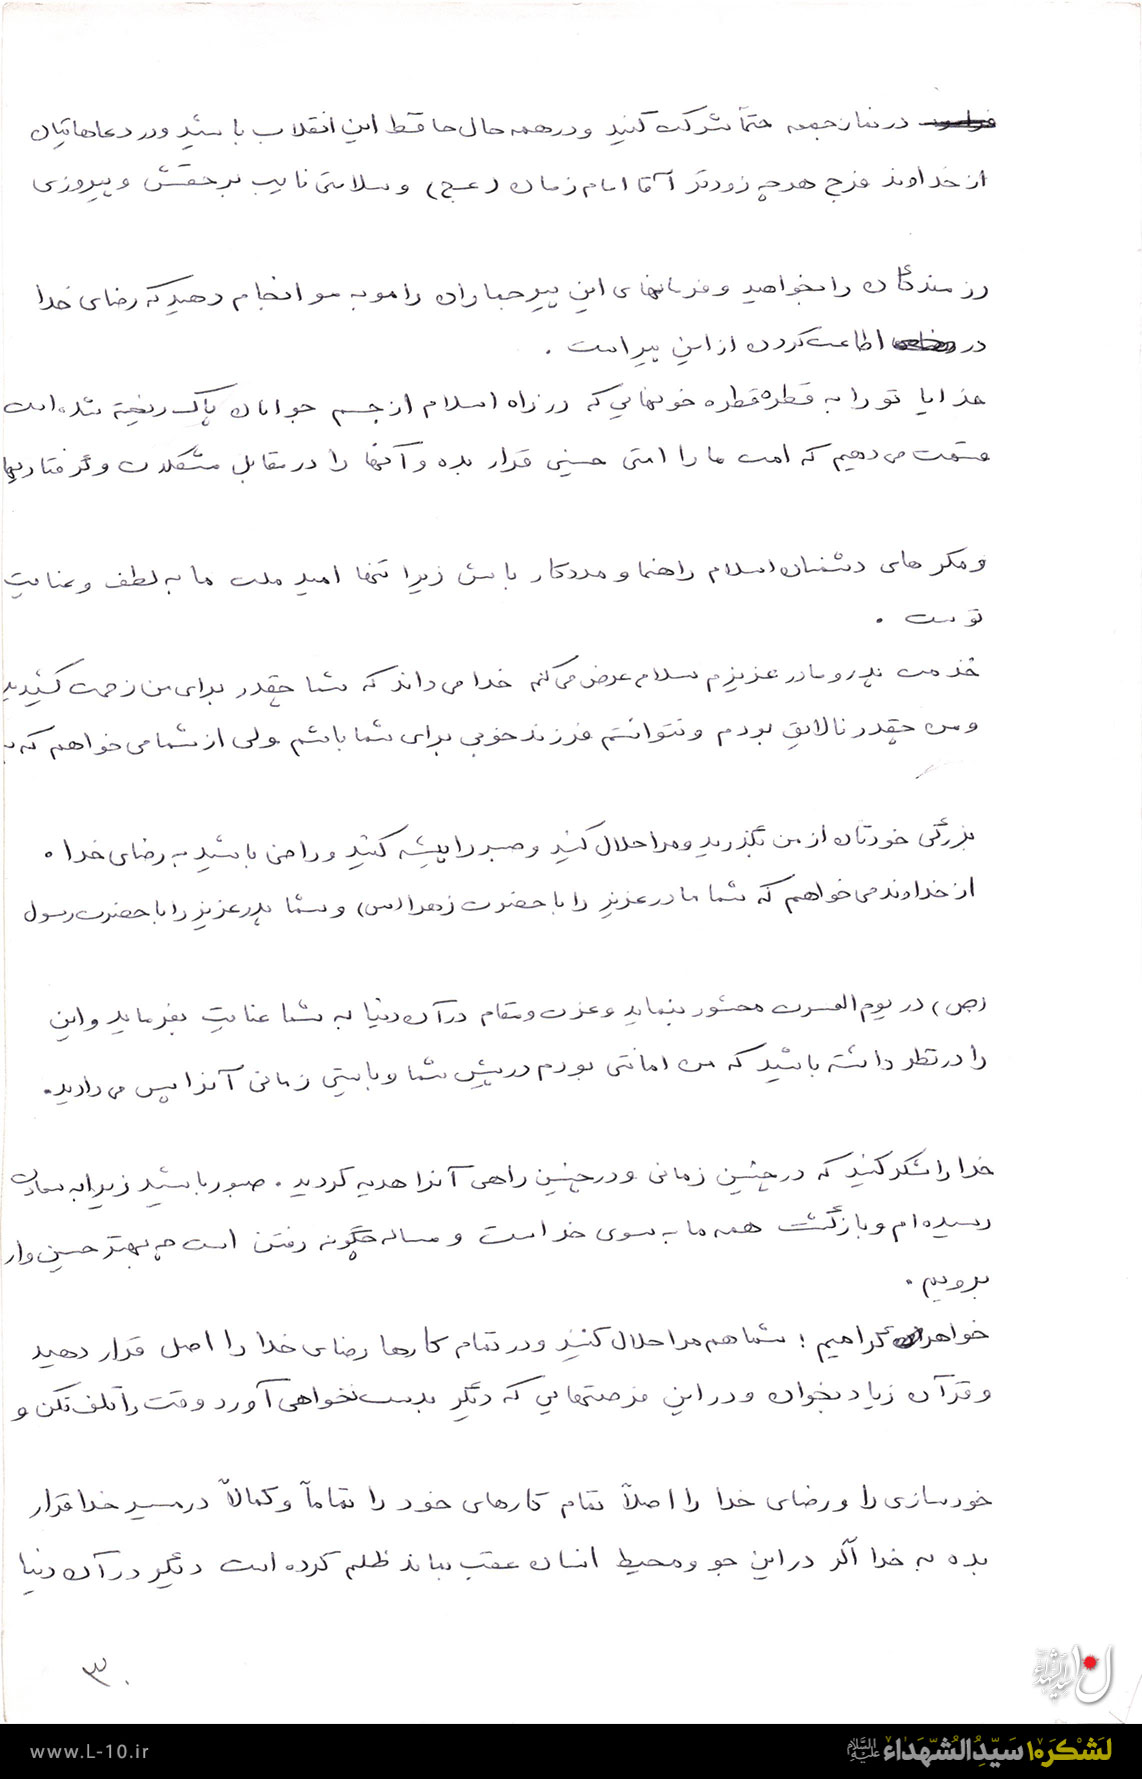 در نماز جمعه حتماً شرکت کنید و در همه حال حافظ این انقلاب باشید و در دعاهایتان
از خداوند فرج هر چه زودتر آقا امام زمان (عج) و سلامتی نایب بر حقش و پیروزی
رزمندگان را بخواهید و فرمانهای این پیر جماران را مو به مو انجام دهید که رضای خدا
در اطاعت کردن از این پیر است .
خدایا تو را به قطره قطره خونهایی که در راه اسلام از جسم جوانان پاک ریخته شده است
قسمت می دهیم که امت ما را امتی حسینی قرار بده و آنها را در مقابل مشکلات و گرفتاریها
و مکر های دشمنان اسلام راهنما و مددکار باش زیرا تنها امید ملت ما به لطف و عنایت
توست .
خدمت پدر و مادر عزیزم سلام عرض می کنم خدا می داند که شما چقدر برای من زحمت کشیدید
و من چقدر نالایق بودم و نتوانستم فرزند خوبی برای شما باشم ولی از شما می خواهم که به
بزرگی خودتان از من بگذرید و مرا حلال کنید و صبر را پیشه کنید و راضی باشید به رضای خدا .
از خداوند می خواهم که شما مادر عزیز را با حضرت زهرا (س) و شما پدر عزیز را با حضرت رسول
(ص) در یوم الحسرت محشور بنماید و عزت و مقام در آن دنیا به شما عنایت بفرماید و این
را در نظر داشته باشید که من امانتی بودم در پیش شما و بایستی زمانی آنرا پس می دادید.
خدا را شکر کنید که در چنین زمانی و در چنین راهی آنرا هدیه کردید . صبور باشید زیرا به سعادت
رسیده ام و بازگشت همه ما به سوی خداست و مساله چگونه رفتن است چه بهتر حسین وار
برویم .
خواهران گرامیم ؛ شما هم مرا حلال کنید و در تمام کارها رضای خدا را اصل قرار دهید
و قرآن زیاد بخوان و در این فرصتهایی که دیگر بدست نخواهی آورد وقت را تلف نکن و
خودسازی را و رضای خدا را اصلاً تمام کارهای خود را تماماً و کمالاً در مسیر خدا قرار
بده به خدا اگر در این جو و محیط انسان عقب بماند ظلم کرده است دیگر در آن دنیا
۳۰
www.L-10.ir
لَشْکَرِ۱۰ سَیِّدُالشُّهَداء عَلَیْهِ السَّلام